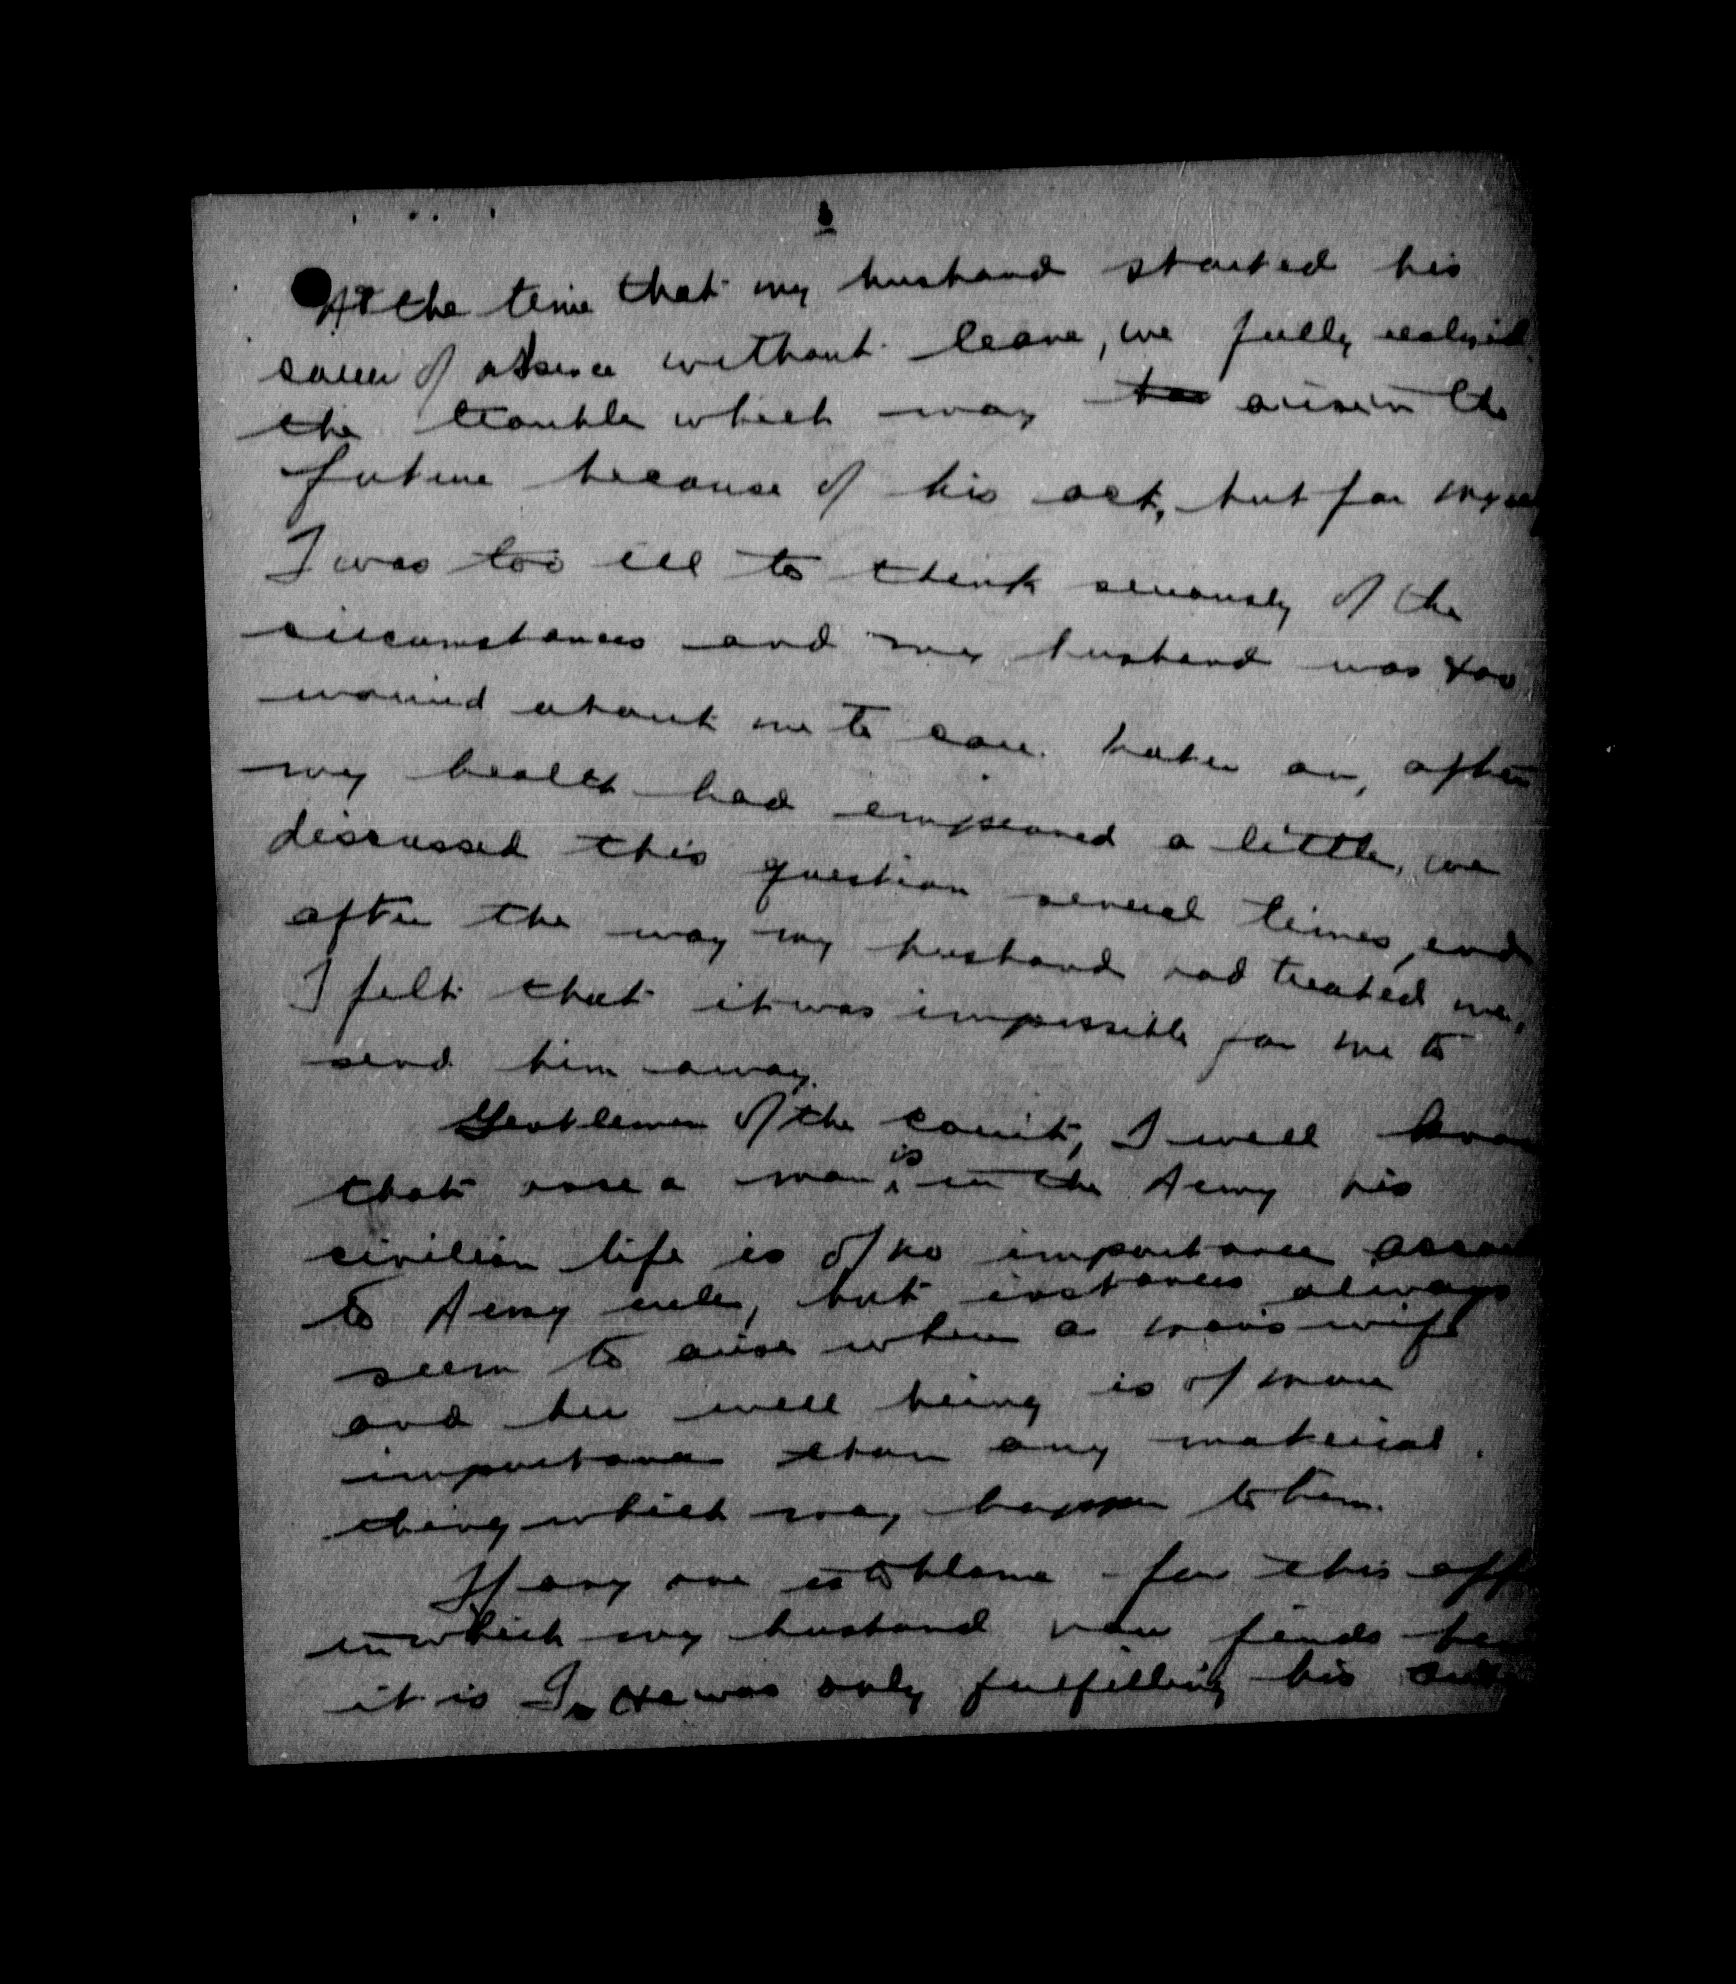 At the time that my husband started his
of absence without leave, we fully realised
the trouble which may arise in the
future because of his act, but for
I was too ill to think seriously of the
circumstances and my husband was too
worried about me to care. Later on, after
my health had improved a little, we
discussed this question several times, and
after the way my husband had treated me,
I felt that it was impossible for me to
send him away.
Gentlemen of the court, I well know
that once a man is in the Army his
civilian life is of no importance
to Army rules, but instances always
seem to arise when a man's wife
and her well being is of more
importance than any material
thing which may happen to him.
If any one is to blame for this
in which my husband now finds
it is I. He was only fulfilling his